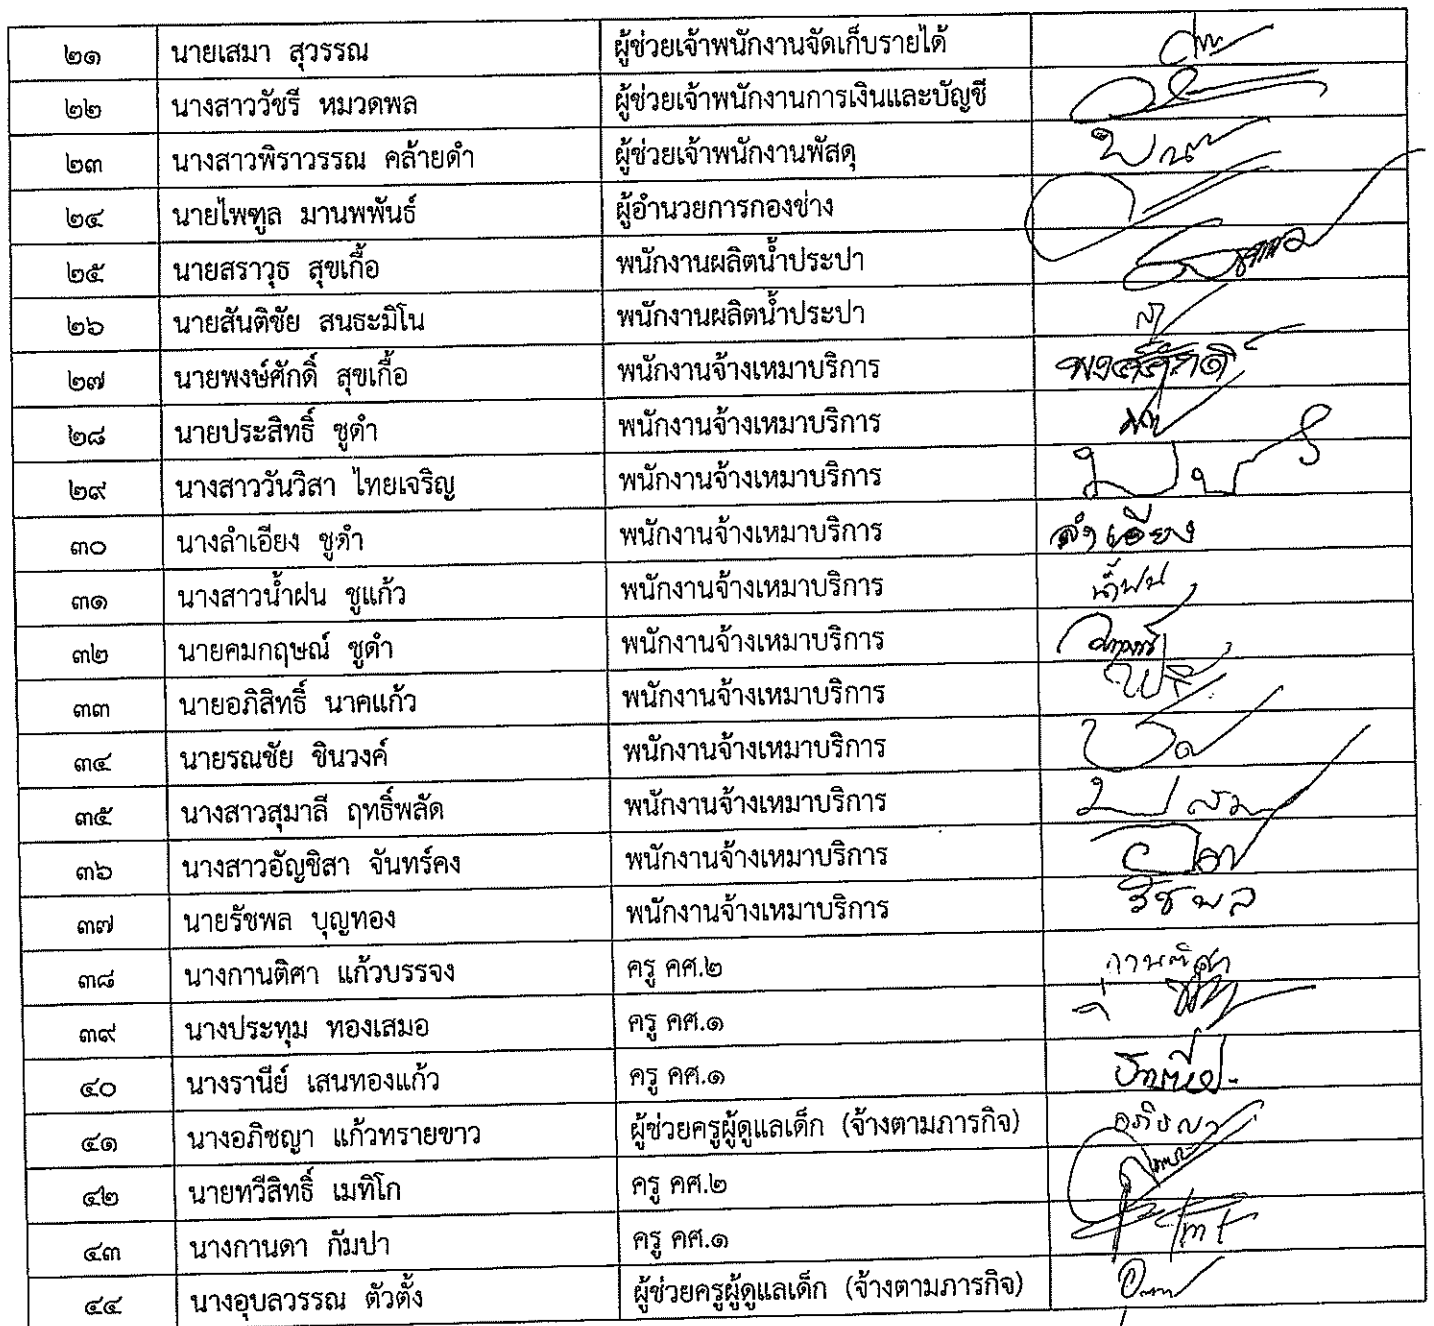 ๒๑ นายเสมา สุวรรณ ผู้ช่วยเจ้าพนักงานจัดเก็บรายได้
๒๒ นางสาววัชรี หมวดพล ผู้ช่วยเจ้าพนักงานการเงินและบัญชี
๒๓ นางสาวพิราวรรณ คล้ายดำ ผู้ช่วยเจ้าพนักงานพัสดุ
๒๔ นายไพฑูล มานพพันธ์ ผู้อำนวยการกองช่าง
๒๕ นายสราวุธ สุขเกื้อ พนักงานผลิตน้ำประปา
๒๖ นายสันติชัย สนธะมิโน พนักงานผลิตน้ำประปา
๒๗ นายพงษ์ศักดิ์ สุขเกื้อ พนักงานจ้างเหมาบริการ
๒๘ นายประสิทธิ์ ชูดำ พนักงานจ้างเหมาบริการ
๒๙ นางสาววันวิสา ไทยเจริญ พนักงานจ้างเหมาบริการ
๓๐ นางลำเอียง ชูดำ พนักงานจ้างเหมาบริการ ลำเอียง
๓๑ นางสาวน้ำฝน ชูแก้ว พนักงานจ้างเหมาบริการ น้ำฝน
๓๒ นายคมกฤษณ์ ชูดำ พนักงานจ้างเหมาบริการ
๓๓ นายอภิสิทธิ์ นาคแก้ว พนักงานจ้างเหมาบริการ
๓๔ นายรณชัย ชินวงค์ พนักงานจ้างเหมาบริการ
๓๕ นางสาวสุมาลี ฤทธิ์พลัด พนักงานจ้างเหมาบริการ
๓๖ นางสาวอัญชิสา จันทร์คง พนักงานจ้างเหมาบริการ
๓๗ นายรัชพล บุญทอง พนักงานจ้างเหมาบริการ รัชพล
๓๘ นางกานติศา แก้วบรรจง ครู คศ.๒ กานติศา
๓๙ นางประทุม ทองเสมอ ครู คศ.๑
๔๐ นางรานีย์ เสนทองแก้ว ครู คศ.๑
๔๑ นางอภิชญา แก้วทรายขาว ผู้ช่วยครูผู้ดูแลเด็ก (จ้างตามภารกิจ) อภิชญา
๔๒ นายทวีสิทธิ์ เมทิโก ครู คศ.๒
๔๓ นางกานดา กัมปา ครู คศ.๑
๔๔ นางอุบลวรรณ ตัวตั้ง ผู้ช่วยครูผู้ดูแลเด็ก (จ้างตามภารกิจ)